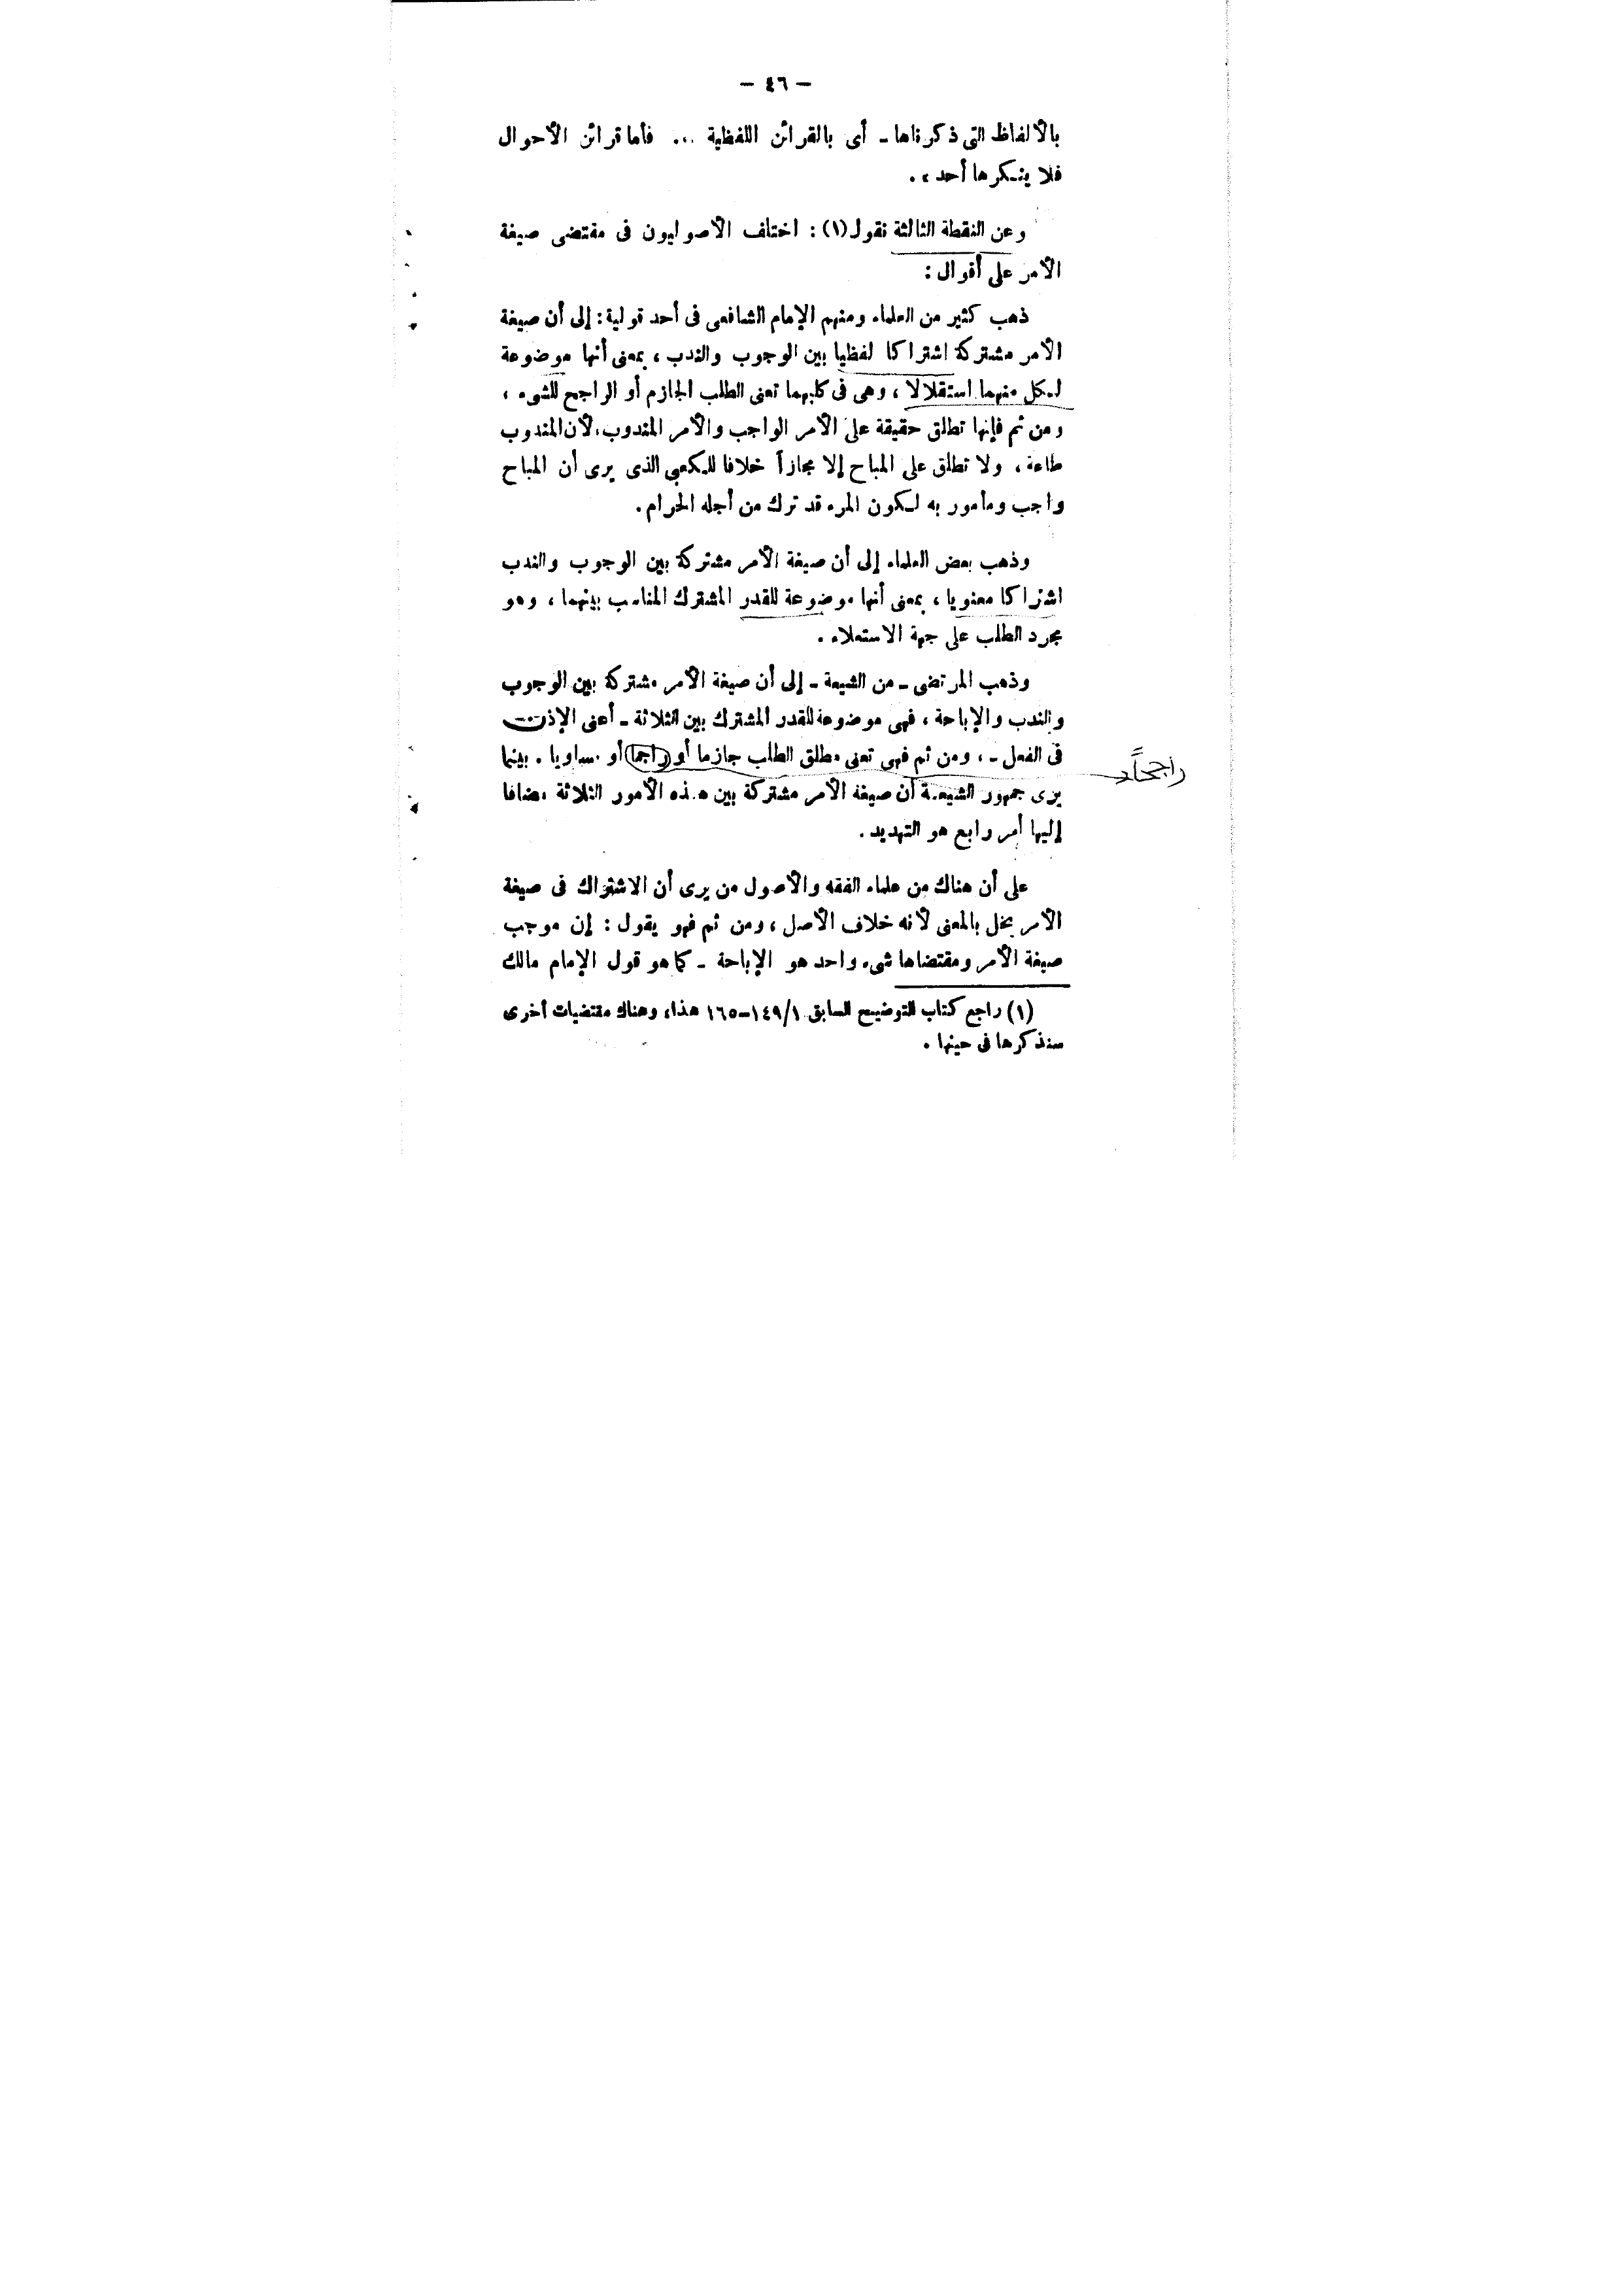 — ٤٦ —
بالألفاظ التى ذكرناها - أى بالقرائن اللفظية ... فأما قرائن الأحوال
فلا ينكرها أحد ، .
وعن النقطة الثالثة نقول (١) : اختلف الأصوليون فى مقتضى صيغة
الأمر على أقوال :
ذهب كثير من العلماء ومنهم الإمام الشافعى فى أحد قولية : إلى أن صيغة
الأمر مشتركة اشتراكا لفظيا بين الوجوب والندب ، بمعنى أنها موضوعة
لكل منهما استقلالا ، وهى فى كليهما تعنى الطلب الجازم أو الراجح للشىء ،
ومن ثم فإنها تطلق حقيقة على الأمر الواجب والأمر المندوب ، لأن المندوب
طاعة ، ولا تطلق على المباح إلا مجازاً خلافا للكعبى الذى يرى أن المباح
واجب ومأمور به لكون المرء قد ترك من أجله الحرام .
وذهب بعض العلماء إلى أن صيغة الأمر مشتركة بين الوجوب والندب
اشتراكا معنويا ، بمعنى أنها موضوعة للقدر المشترك المناسب بينهما ، وهو
مجرد الطلب على جهة الاستعلاء .
وذهب المرتضى - من الشيعة - إلى أن صيغة الأمر مشتركة بين الوجوب
والندب والإباحة ، فهى موضوعة للقدر المشترك بين الثلاثة - أعنى الإذن
فى الفعل - ، ومن ثم فهى تعنى مطلق الطلب جازما أو راجما أو مساويا . بينما
راجحاً
يرى جمهور الشيعة أن صيغة الأمر مشتركة بين هذه الأمور الثلاثة مضافا
إليها أمر رابع هو التهديد .
على أن هناك من علماء الفقه والأصول من يرى أن الاشتراك فى صيغة
الأمر يخل بالمعنى لأنه خلاف الأصل ، ومن ثم فهو يقول : إن موجب
صيغة الأمر ومقتضاها شىء واحد هو الإباحة - كما هو قول الإمام مالك
(١) راجع كتاب التوضيح السابق ١/١٤٩-١٦٥ هذا، وهناك مقتضيات أخرى
سنذكرها فى حينها .